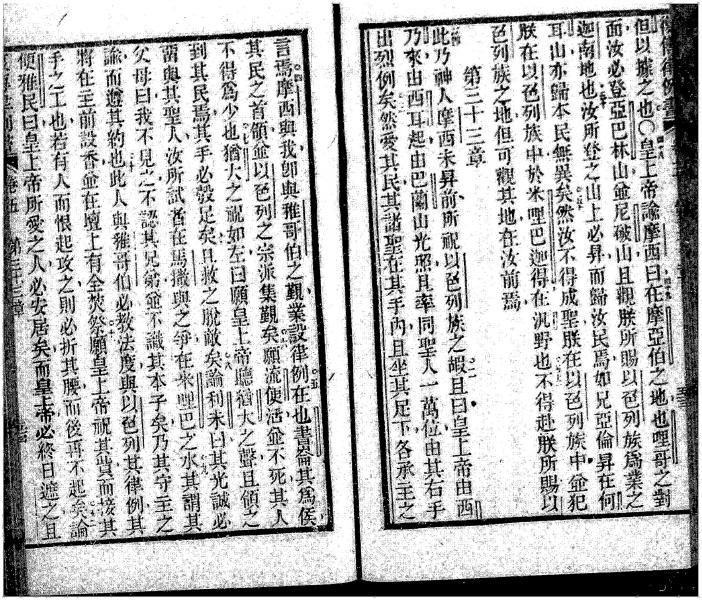 但以據之也○皇上帝諭摩西曰在摩亞伯之地也哩哥之對
面汝必登亞巴林山並尼破山且觀朕所賜以色列族為業之
迦南地也汝所登之山上必昇而歸汝民焉如兄亞倫昇在何
耳山亦歸本民無異矣然汝不得成聖朕在以色列族中並犯
朕在以色列族中於米哩巴迦得在汎野也不得赴朕所賜以
色列族之地但可觀其地在汝前焉
第三十三章
此乃神人摩西未昇前所祝以色列族之嘏且曰皇上帝由西
乃來由西耳起由巴蘭山光照且率同聖人一萬位由其右手
出烈例矣然愛其民其諸聖在其手內且坐其足下各承主之
言焉摩西與我即與雅哥伯之覲業設律例在也書崙其為侯
其民之首領並以色列之宗派集覲矣願流便活並不死其人
不得為少也猶大之祝如左曰願皇上帝聽猶大之聲且領之
到其民焉其手必彀足矣且救之脫敵矣論利未曰其光誠必
需與其聖人汝所試者在馬撒與之爭在米哩巴之水其謂其
父母曰我不見之不認其兄弟並不識其本子矣乃其守主之
諭而遵其約也此人與雅哥伯必教法度與以色列其律例其
將在主前設香並在壇上有全焚祭願皇上帝祝其貲而接其
手之工也若有人而恨起攻之則必折其腰而後再不起矣論
便雅民曰皇上帝所愛之人必安居矣而皇上帝必終日遮之且
卷五
第三十三章